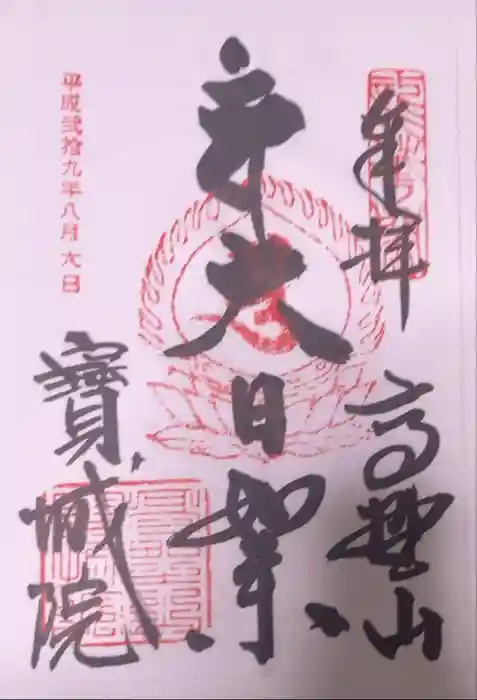 奉拝
高野山
大日如来
寳城院
平成弐拾九年八月六日